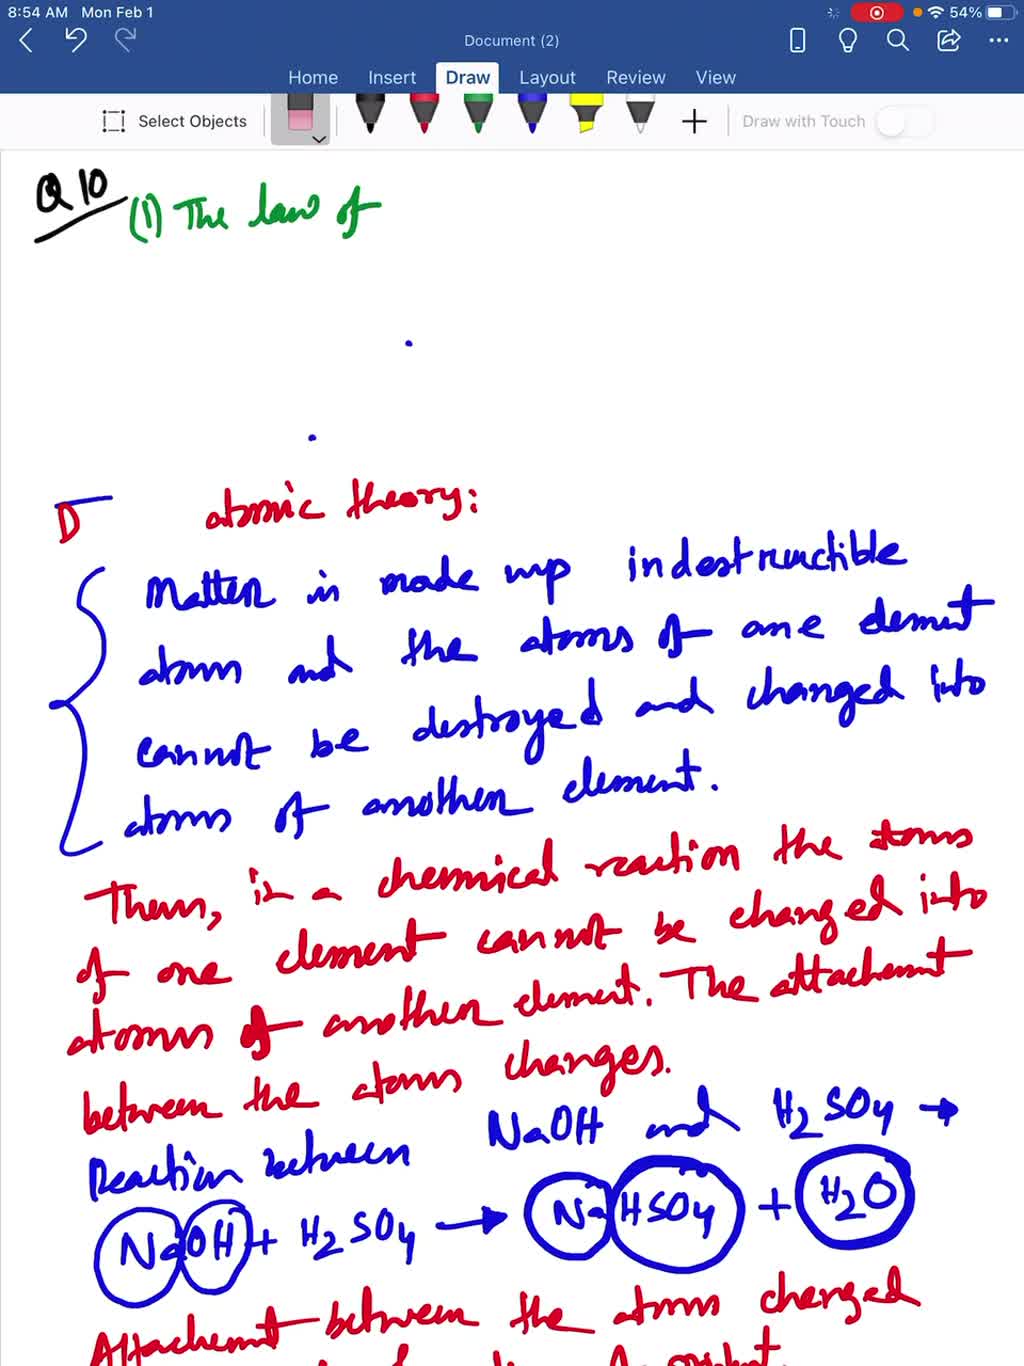 8:54 AM Mon Feb 1
54%
Document (2)
Home Insert Draw Layout Review View
Select Objects
Draw with Touch
Q 10
(1) The law of
D atomic theory:
Matter is made up indestructible
atoms and the atoms of one element
cannot be destroyed and changed into
atoms of another element.
Thus, in a chemical reaction the atoms
of one element cannot be changed into
atoms of another element. The attachment
between the atoms changes.
Reaction between NaOH and H2SO4 →
NaOH + H2SO4 → NaHSO4 + H2O
Attachment between the atoms changed